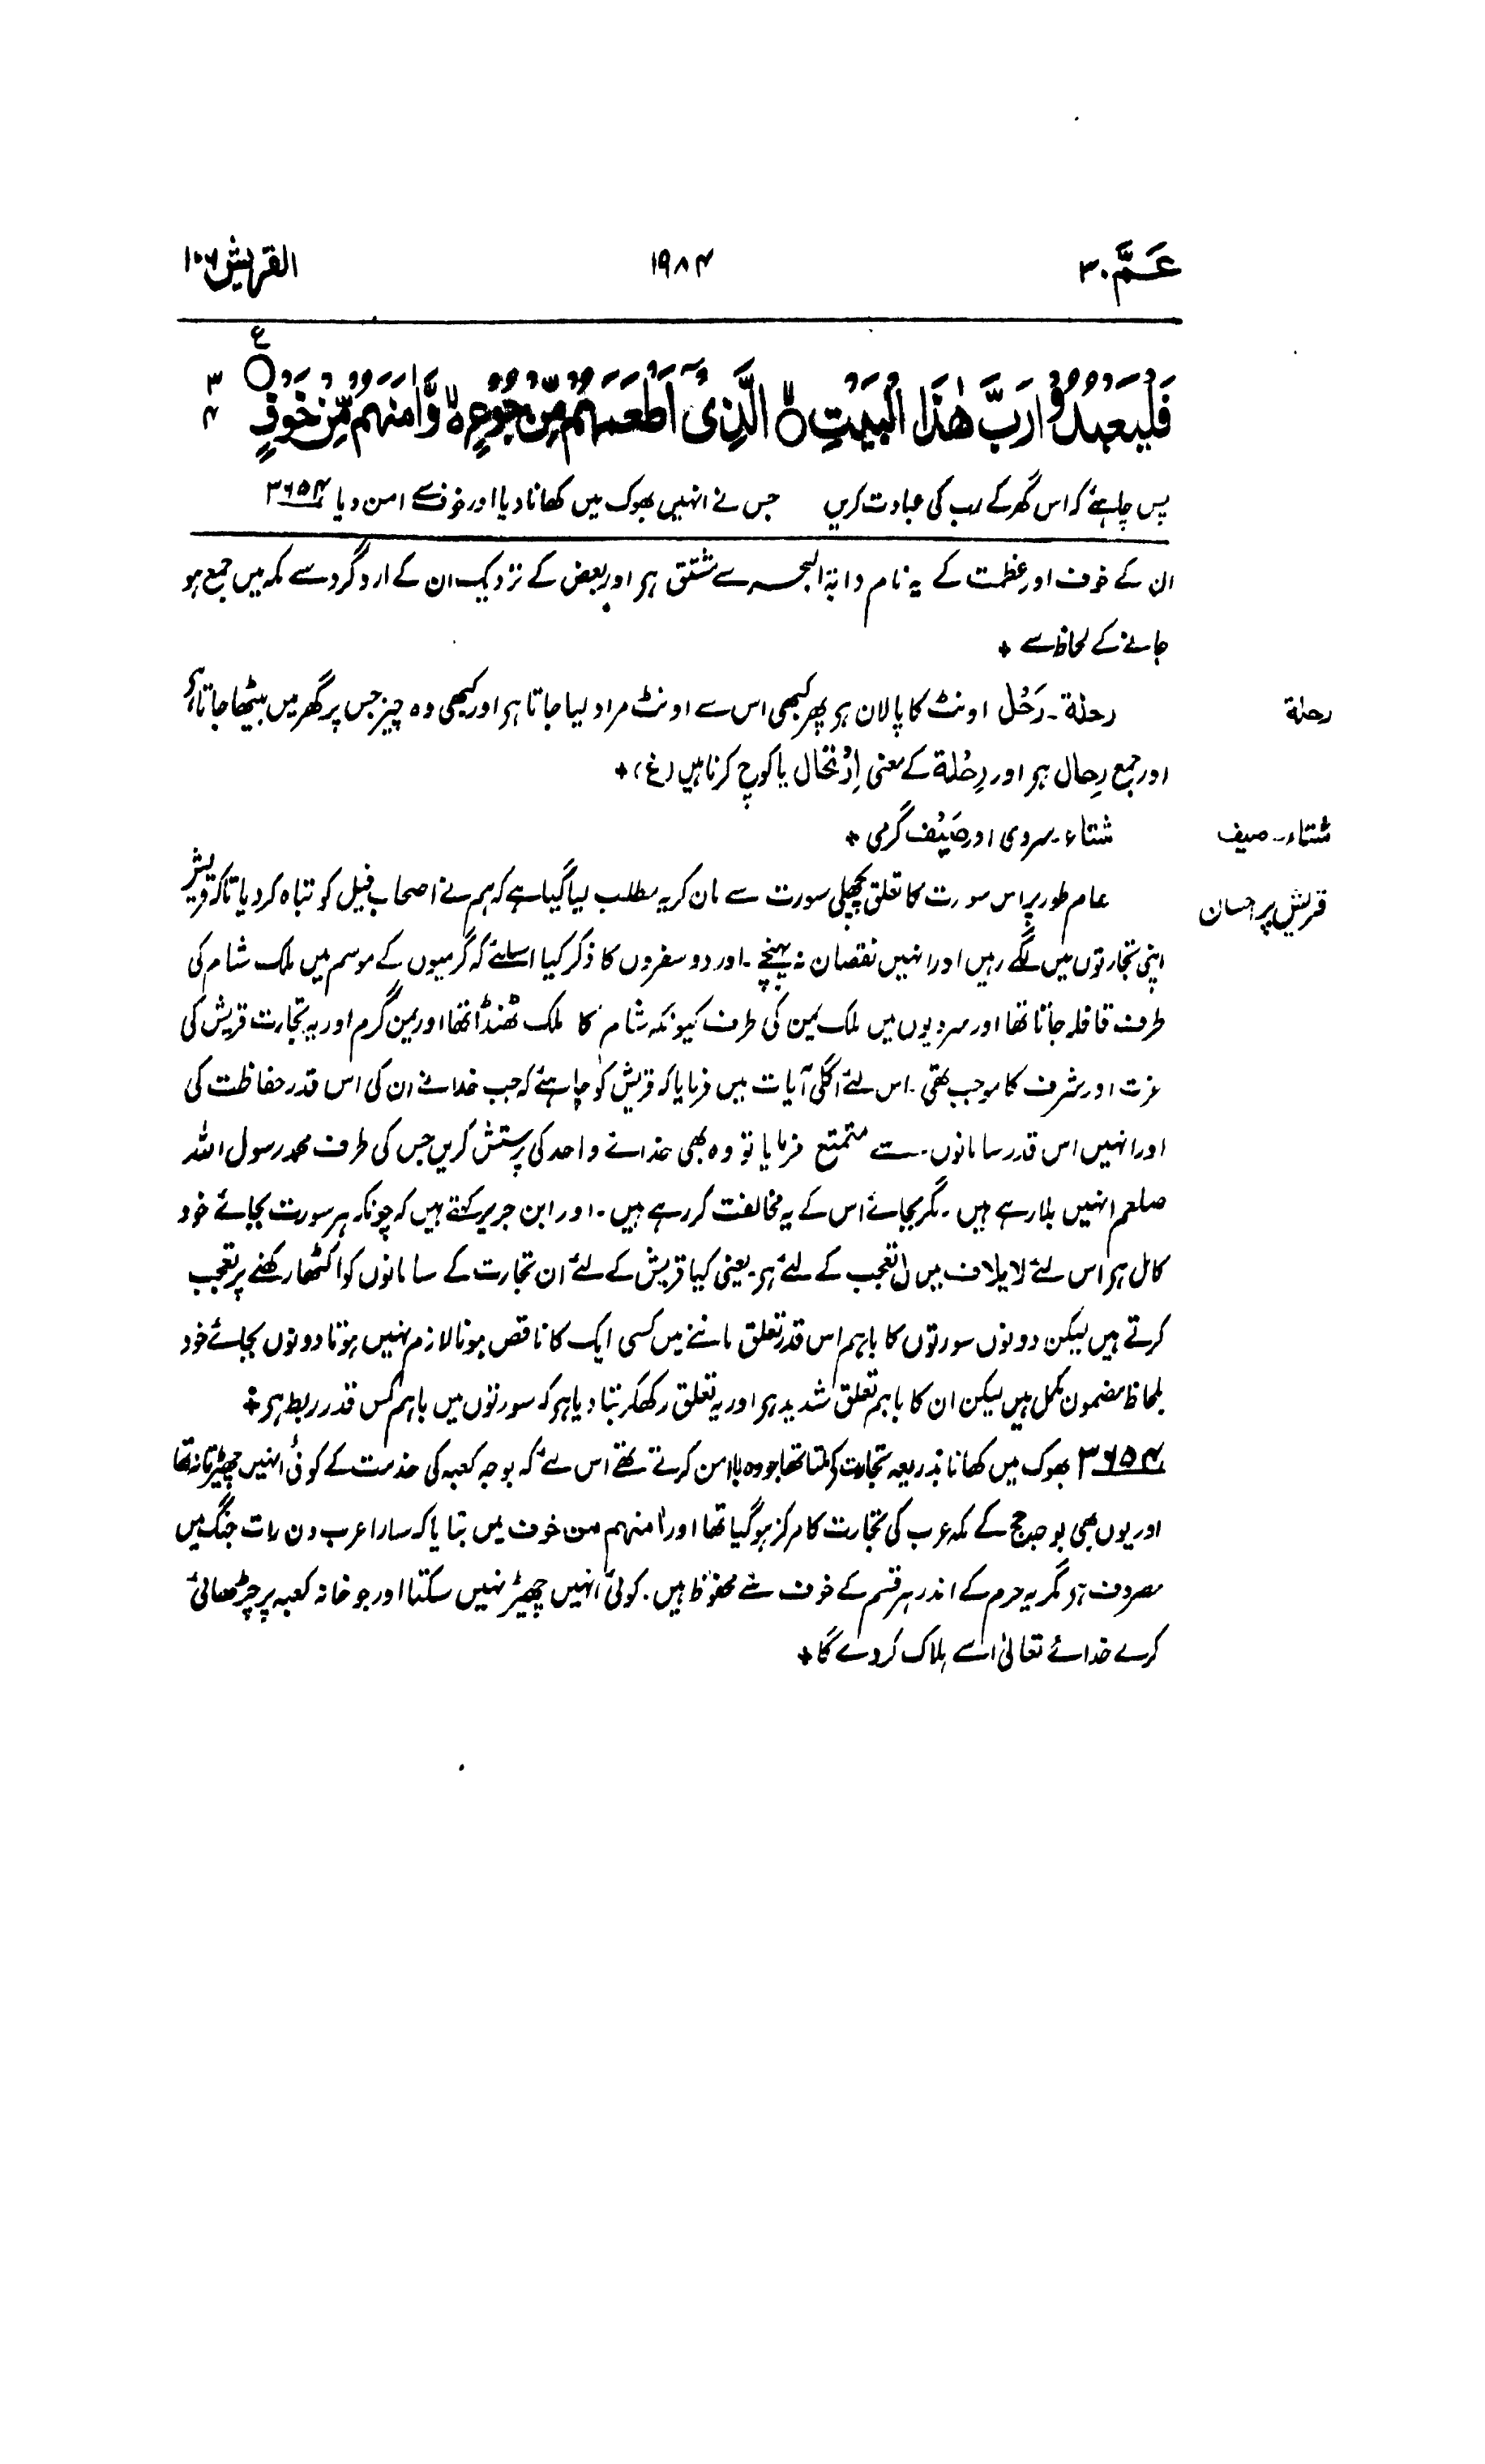 عَمَّ ۳۰
۱۹۸۴
القریش ۱۰۶
فَلْيَعْبُدُوْا رَبَّ هٰذَا الْبَيْتِ ۙ الَّذِيْٓ اَطْعَمَهُمْ مِّنْ جُوْعٍ ۙ وَّاٰمَنَهُمْ مِّنْ خَوْفٍ
ع
۳
۴
پس چاہئے کہ اس گھر کے رب کی عبادت کریں جس نے انہیں بھوک میں کھانا دیا اور خوف سے امن دیا ۳۶۵۴
ان کے خوف اور عظمت کے یہ نام دابۃ البحر سے مشتق ہے اور بعض کے نزدیک ان کے ارد گرد سے مکہ میں جمع ہو
جانے کے لحاظ سے +
رحلة
رحلة۔ رَحْل اونٹ کا پالان ہے پھر کبھی اس سے اونٹ مراد لیا جاتا ہے اور کبھی وہ چیز جس پر گھر میں بیٹھا جاتا ہے
اور جمع رِحال ہے اور رِحْلة کے معنی اِرْتحال یا کوچ کرنا ہیں (غ) +
شتاء۔ صیف
شتاء۔ سردی اور صَیْف گرمی +
قریش پر احسان
عام طور پر اس سورت کا تعلق پچھلی سورت سے مان کر یہ مطلب لیا گیا ہے کہ ہم نے اصحاب فیل کو تباہ کر دیا تاکہ قریش
اپنی تجارتوں میں لگے رہیں اور انہیں نقصان نہ پہنچے۔ اور دو سفروں کا ذکر کیا اسلئے کہ گرمیوں کے موسم میں ملک شام کی
طرف قافلہ جاتا تھا اور سردیوں میں ملک یمن کی طرف کیونکہ شام کا ملک ٹھنڈا تھا اور یمن گرم اور یہ تجارت قریش کی
عزت اور شرف کا موجب تھی۔ اس لئے اگلی آیات میں فرمایا کہ قریش کو چاہئے کہ جب خدا نے ان کی اس قدر حفاظت کی
اور انہیں اس قدر سامانوں سے متمتع فرمایا تو وہ بھی خدائے واحد کی پرستش کریں جس کی طرف محمد رسول اللہ
صلعم انہیں بلا رہے ہیں۔ مگر بجائے اس کے یہ مخالفت کر رہے ہیں۔ اور ابن جریر کہتے ہیں کہ چونکہ ہر سورت بجائے خود
کامل ہے اس لئے لایلاف میں ل تعجب کے لئے ہے۔ یعنی کیا قریش کے لئے ان تجارت کے سامانوں کو اکٹھا رکھنے پر تعجب
کرتے ہیں لیکن دونوں سورتوں کا باہم اس قدر تعلق ماننے میں کسی ایک کا ناقص ہونا لازم نہیں ہوتا دونوں بجائے خود
بلحاظ مضمون مکمل ہیں لیکن ان کا باہم تعلق شدید ہے اور یہ تعلق رکھکر بتا دیا ہے کہ سورتوں میں باہم کس قدر ربط ہے +
۳۶۵۴ بھوک میں کھانا بذریعہ تجارت کے ملتا تھا جو وہ باامن کرتے تھے اس لئے کہ بوجہ کعبہ کی خدمت کے کوئی انہیں چھیڑتا نہ تھا
اور یوں بھی بوجہ حج کے مکہ عرب کی تجارت کا مرکز ہو گیا تھا اور اٰمنہم من خوف میں بتایا کہ سارا عرب دن رات جنگ میں
مصروف ہے مگر یہ حرم کے اندر ہر قسم کے خوف سے محفوظ ہیں۔ کوئی انہیں چھیڑ نہیں سکتا اور جو خانہ کعبہ پر چڑھائی
کرے خدائے تعالیٰ اسے ہلاک کردے گا +